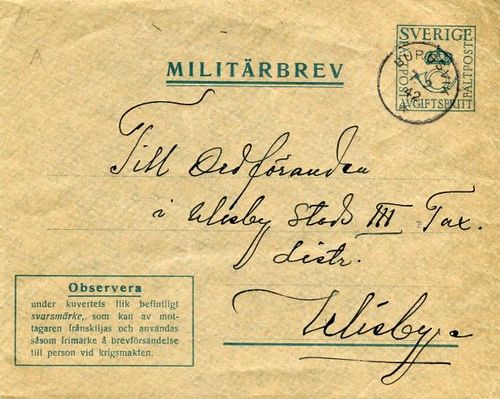 A
SVERIGE
FÄLTPOST
AVGIFTSFRITT
BURGSVIK
42
MILITÄRBREV
Till Ordföranden
i Wisby Stads III Tax.
distr.
Wisby
Observera
under kuvertets flik befintligt
svarsmärke, som kan av mot-
tagaren frånskiljas och användas
såsom frimärke å brevförsändelse
till person vid krigsmakten.